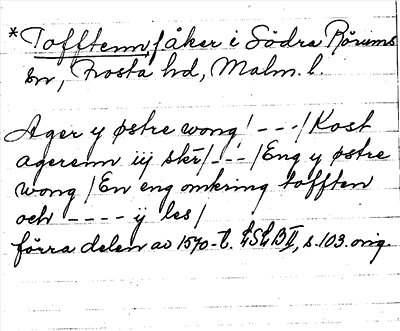 *Tofftenn, åker i Södra Rörums
sn, Frosta hd, Malm. l.
Ager y østre wong / - - - / Kost
agerenn iij skr / - - - / Eng y østre
wong / En eng omkring tofften
och - - - - ij les /
förra delen av 1570-t. LSLB II, s. 103. orig.